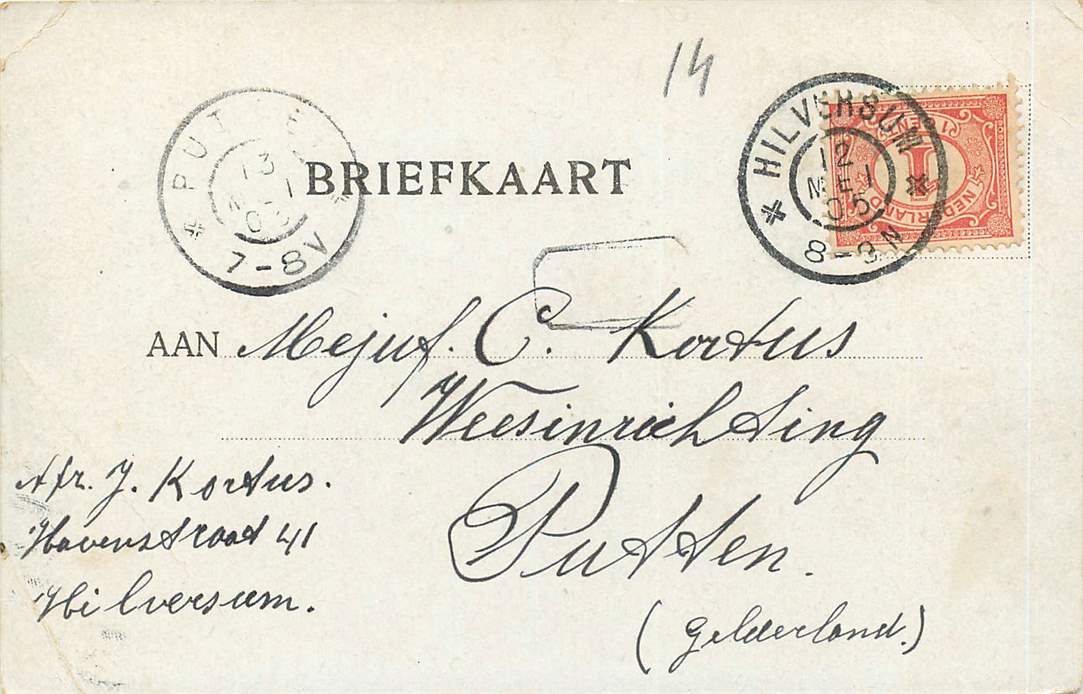 14
PUTTEN
13
MEI
05
7-8V
BRIEFKAART
HILVERSUM
12
MEI
05
8-9N
1 CENT 1
1
NEDERLAND
AAN Mejuf. C. Kortus
Weesinrichting
Putten.
(Gelderland.)
Afr. J. Kortus.
Havenstraat 41
Hilversum.